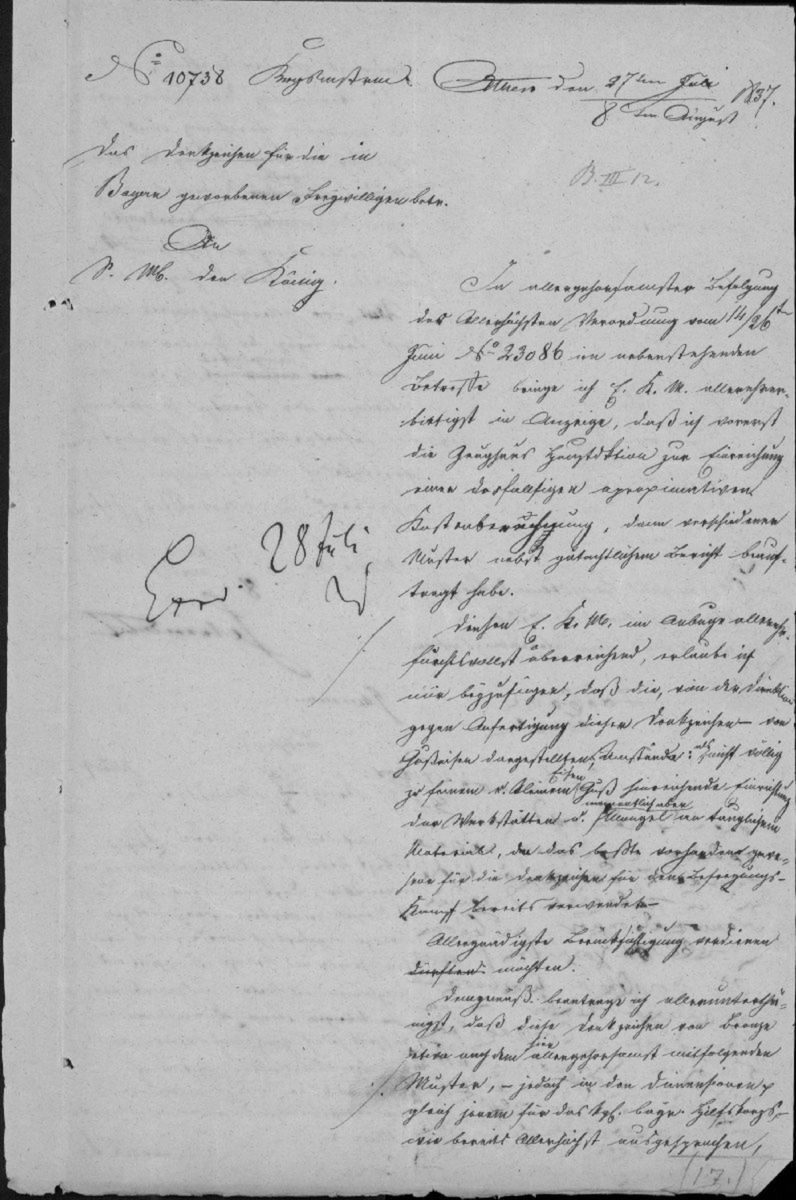 No. 10738 Kriegsministerium Athen den 27ten Juli 1837.
8ten August
Das Denkzeichen für die in
Bayern geworbenen Freywilligen betr.
B. III 12.
An
S. M. den König.
In allergehorsamster Befolgung
der Allerhöchsten Verordnung vom 14/26ten
Juni No. 23086 im nebenstehenden
Betreffe bringe ich E. K. M. allerehrer-
bietigst in Anzeige, daß ich vorerst
die Zeughaus Hauptdirektion zur Einreichung
einer desfallsigen approximativen
Kostenberechnung, dann verschiedener
Muster nebst gutachtlichem Bericht beauf-
tragt habe.
28 Juli
Exp.
Diesen E. K. M. im Anbuge allerehr-
furchtsvollst überreichend, erlaube ich
mir beyzufügen, daß die, von der Direktion
gegen Anfertigung dieser Denkzeichen – von
Gußeisen dargestellten Umstände: als nicht völlig
zu feinem u. kleinem Eisen Guß hinreichende Einrichtung
der Werkstätten u. namentlich aber Mangel an tauglichem
Material, da das beste vorhanden gewe-
sene für die Denkzeichen für den Befreyungs-
Kampf bereits verwendet –
Allergnädigste Berücksichtigung verdienen
dürften. möchten.
Demgemäß beantrage ich allerunterthä-
nigst, daß diese Denkzeichen von Bronze
etwa nach dem hier allergehorsamst mitfolgenden
Muster, – jedoch in den Dimensionen
gleich jenem für das kgl. bayr. Hilfskorps,
wie bereits Allerhöchst ausgesprochen,
(17.)